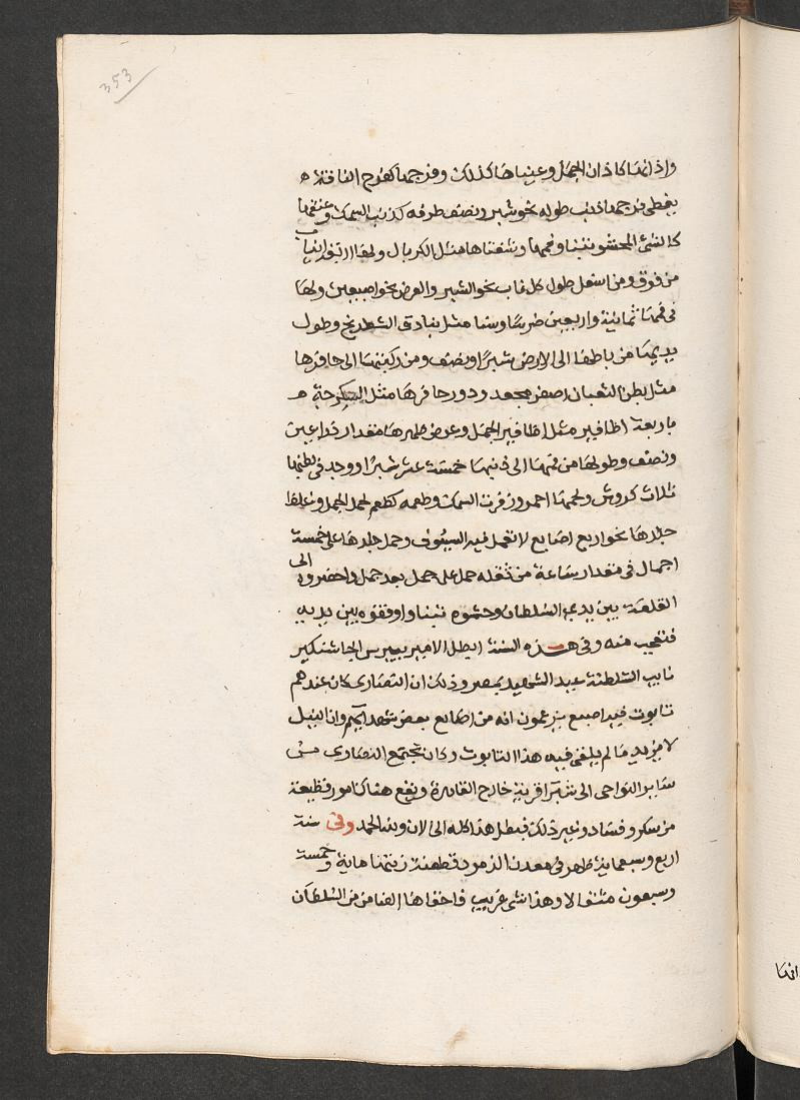 353
واذانها كاذان الجمل وعيناها كذلك وفرجها كفرج الناقة
يغطي فرجها ذنب طوله نحو شبر ونصف طرفه كذنب السمك وعنقها
كالشئ المحشو تبنا وفمها وشفتاها مثل الكربال ولها اربع انياب
من فوق ومن اسفل طول كل ناب نحو الشبر والعرض نحو اصبعين ولها
في فمها ثمانية واربعين ضرسا وسنا مثل بنادق الشطرنج وطول
يديها من باطنها الى الارض شبرا ونصف ومن ركبتها الى حافرها
مثل بطن الثعبان اصفر مجعد ودور حافرها مثل السكرجة
باربعة اظافير مثل اظافير الجمل وعرض ظهرها مقدار ذراعين
ونصف وطولها من فمها الى ذنبها خمسة عشر شبرا ووجد في بطنها
ثلاث كروش ولحمها احمر وزفرته السمك وطعمه كطعم لحم الجمل وغلظ
جلدها نحو اربع اصابع لا تعمل فيه السيوف وحمل جلدها على خمسة
اجمال في مقدار ساعة من ثقله حمل على جمل بعد جمل واحضروه الى
القلعة بين يدي السلطان وحشوه تبنا واوقفوه بين يديه
فتعجب منه وفي هذه السنة ابطل الامير بيبرس الجاشنكير
نايب السلطنة عيد الشهيد بمصر وذلك ان النصارى كان عندهم
تابوت فيه اصبع يزعمون انه من اصابع بعض شهدايهم وان النيل
لا يزيد ما لم يلقى فيه هذا التابوت وكان تجتمع النصارى من
ساير النواحي الى شبرا قرية خارج القاهرة ويقع هناك امور فظيعة
من سكر وفساد وغير ذلك فبطل هذا كله الى الان ولله الحمد وفي سنة
اربع وسبعماية ظهر في معدن الزمرد قطعة زنتها ماية وخمسة
وسبعون مثقالا وهذا شئ غريب فاخفاها الضامن من السلطان